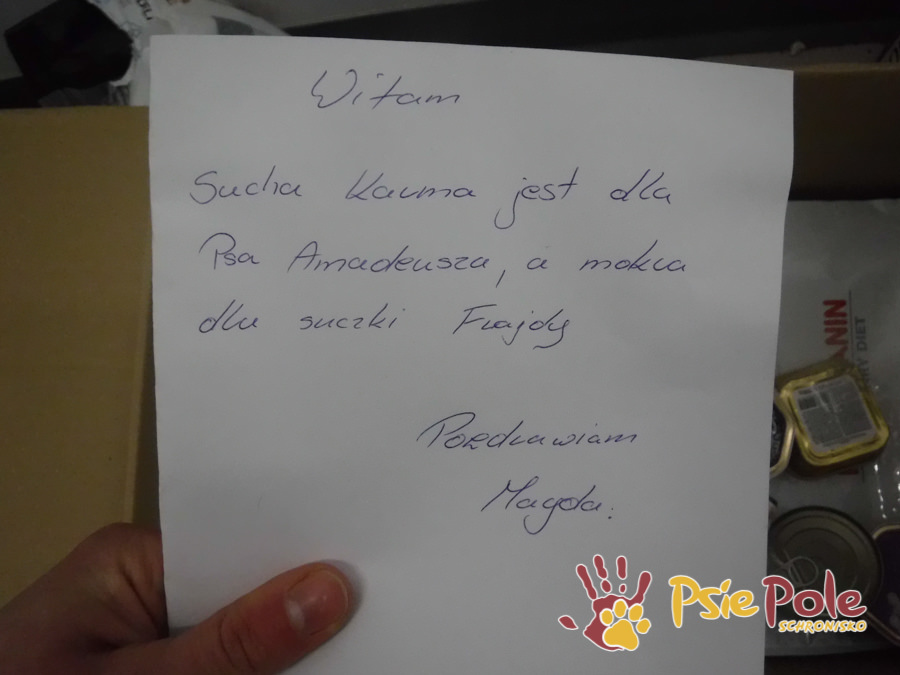 Witam
Sucha Karma jest dla
Psa Amadeusza, a mokra
dla suczki Frajdy
Pozdrawiam
Magda.
ANIN
RY DIET
Psie Pole
SCHRONISKO